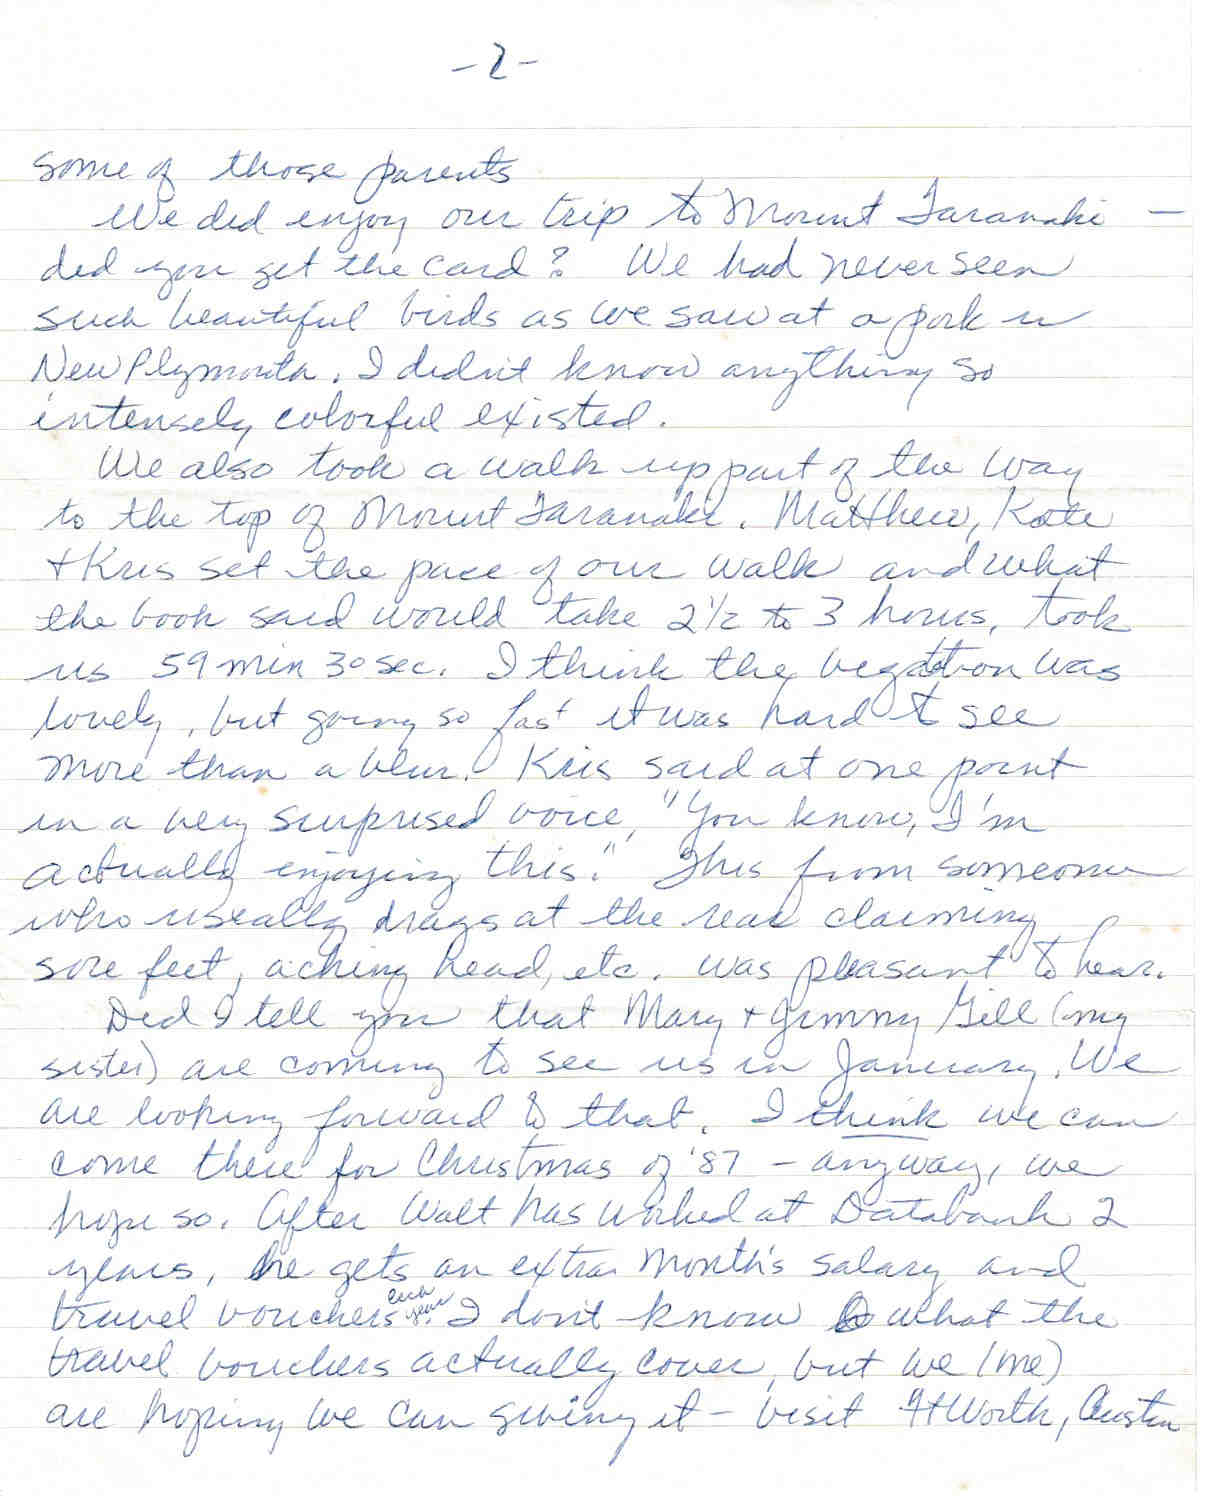 -2-
some of those parents
We did enjoy our trip to Mount Taranaki -
did you get the card? We had never seen
such beautiful birds as we saw at a park in
New Plymouth. I didn't know anything so
intensely colorful existed.
We also took a walk up part of the way
to the top of Mount Taranaki. Matthew, Kate
+ Kris set the pace of our walk and what
the book said would take 2 1/2 to 3 hours, took
us 59 min 30 sec. I think the vegatation was
lovely, but going so fast it was hard to see
more than a blur. Kris said at one point
in a very surprised voice, "You know, I'm
actually enjoying this." This from someone
who useally drags at the rear claiming
sore feet, aching head, etc. was pleasant to hear.
Did I tell you that Mary + Jimmy Gill (my
sister) are coming to see us in January. We
are looking forward to that. I think we can
come there for Christmas of '87 - anyway, we
hope so. After Walt has worked at Databank 2
years, he gets an extra month's salary and
travel vouchers each year. I don't know what the
travel vouchers actually cover, but we (me)
are hoping we can swing it - visit Ft Worth, Austin